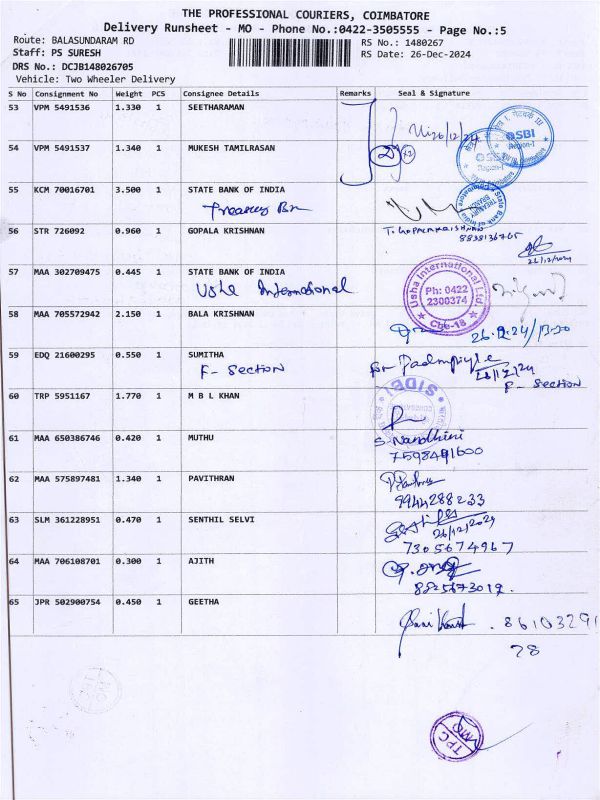 THE PROFESSIONAL COURIERS, COIMBATORE
Delivery Runsheet - MO - Phone No.:0422-3505555 - Page No.:5
Route: BALASUNDARAM RD
RS No.: 1480267
Staff: PS SURESH
RS Date: 26-Dec-2024
DRS No.: DCJB148026705
Vehicle: Two Wheeler Delivery
S No Consignment No Weight PCS Consignee Details Remarks Seal & Signature
53 VPM 5491536 1.330 1 SEETHARAMAN
26/12/24
SBI
Region-I
54 VPM 5491537 1.340 1 MUKESH TAMILRASAN
2
SBI
Region-I
55 KCM 70016701 3.500 1 STATE BANK OF INDIA
Treasury Bn
56 STR 726092 0.960 1 GOPALA KRISHNAN
T. GOPALAKRISHNAN
26/12/2024
57 MAA 302709475 0.445 1 STATE BANK OF INDIA
Usha International
Usha International Ltd
Ph: 0422
2300374
Cbe-18
58 MAA 705572942 2.150 1 BALA KRISHNAN
26.12.24/13.30
59 EDQ 21600295 0.550 1 SUMITHA
F- Section
for Padmpriya
26/12/24
F- Section
60 TRP 5951167 1.770 1 M B L KHAN
SIDBI
61 MAA 650386746 0.420 1 MUTHU
S. Nandhini
7598491600
62 MAA 575897481 1.340 1 PAVITHRAN
9944288233
63 SLM 361228951 0.470 1 SENTHIL SELVI
26/12/2024
7305674967
64 MAA 706108701 0.300 1 AJITH
8825673019.
65 JPR 502900754 0.450 1 GEETHA
. 86103291
78
TPC
MO